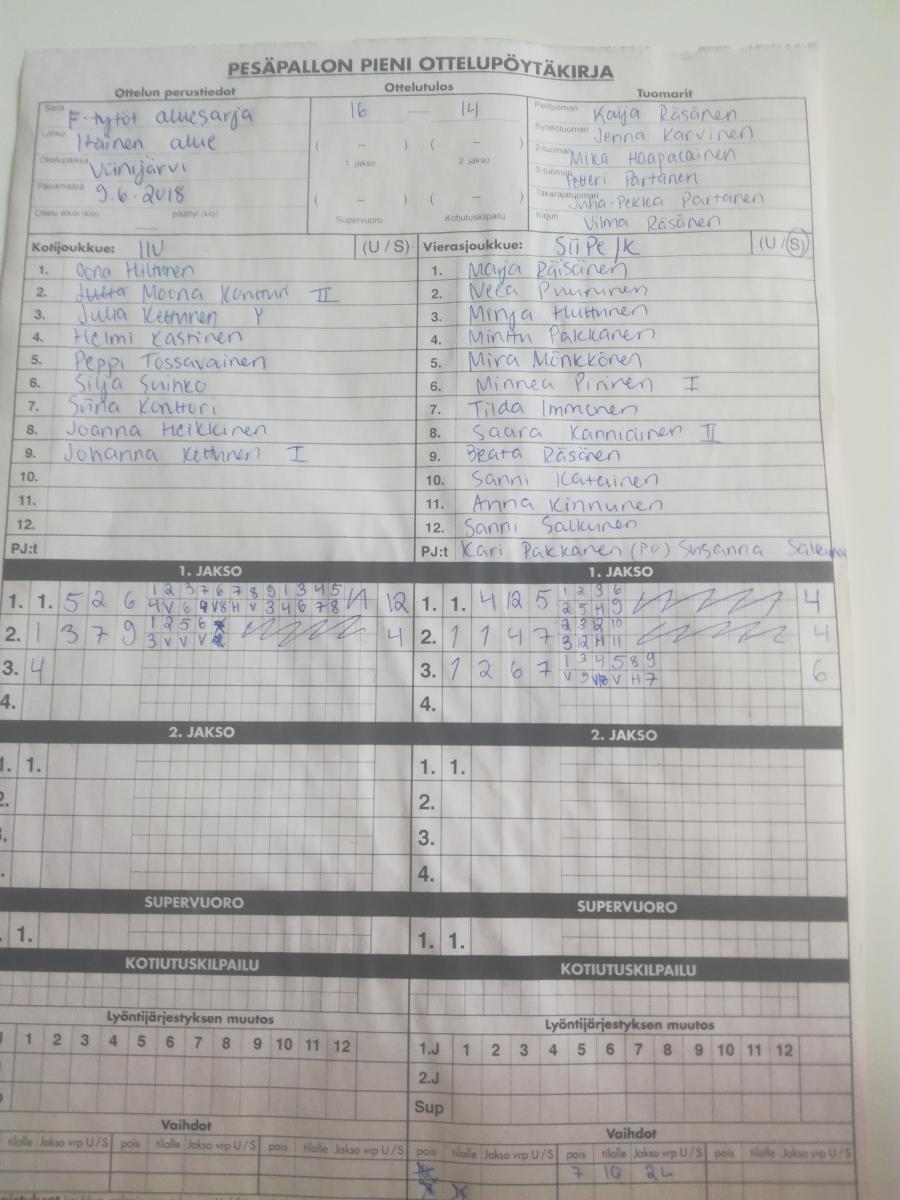 PESÄPALLON PIENI OTTELUPÖYTÄKIRJA
Ottelun perustiedot Ottelutulos Tuomarit
Sarja F-tytöt aluesarja 16 — 14 Pelituomari Kaija Räsänen
Lohko Itäinen alue ( – ) ( – ) Syöttötuomari Jenna Karvinen
1. jakso 2. jakso 2-tuomari Mika Haapalainen
Ottelupaikka Viinijärvi 3-tuomari Petteri Partanen
Päivämäärä 9.6.2018 ( – ) ( – ) Takarajatuomari Juha-Pekka Partanen
Ottelu alkoi (klo) päättyi (klo) Supervuoro Kotiutuskilpailu Kirjuri Vilma Räsänen
Kotijoukkue: (U / S) Vierasjoukkue: SiiPe JK (U / S)
1. Oona Hiltunen 1. Marja Räisänen
2. Moona Kontturi II 2. Neea Puurunen
3. Julia Kettunen Y 3. Minja Huttunen
4. Helmi Kastinen 4. Minttu Pakkanen
5. Peppi Tossavainen 5. Mira Mönkkönen
6. Silja Suihko 6. Minnea Pirinen I
7. Siina Konttori 7. Tilda Immonen
8. Joanna Heikkinen 8. Saara Kanniainen II
9. Johanna Kettunen I 9. Beata Räsänen
10. 10. Sanni Katainen
11. 11. Anna Kinnunen
12. 12. Sanni Salkunen
PJ:t PJ:t Kari Pakkanen (PJ) Susanna
1. JAKSO 1. JAKSO
1 2 3 7 6 7 8 9 1 3 4 5 1 2 3 6
1. 1. 5 2 6 12 1. 1. 4 12 5 2 5 H 9 4
1 2 5 6 2 3 2 10
2. 1 3 7 9 3 V V V 4 2. 1 1 4 7 3 12 H 11 4
1 3 4 5 8 9
3. 4 3. 1 2 6 7 6
4. 4.
2. JAKSO 2. JAKSO
1. 1. 1. 1.
2. 2.
3.
4.
SUPERVUORO SUPERVUORO
1. 1. 1.
KOTIUTUSKILPAILU KOTIUTUSKILPAILU
Lyöntijärjestyksen muutos Lyöntijärjestyksen muutos
1 2 3 4 5 6 7 8 9 10 11 12 1.J 1 2 3 4 5 6 7 8 9 10 11 12
2.J
Sup
Vaihdot Vaihdot
tilalle Jakso vrp U / S pois tilalle Jakso vrp U / S pois tilalle Jakso vrp U / S pois tilalle Jakso vrp U / S pois tilalle Jakso vrp U / S pois tilalle Jakso vrp U / S
7 10 2L